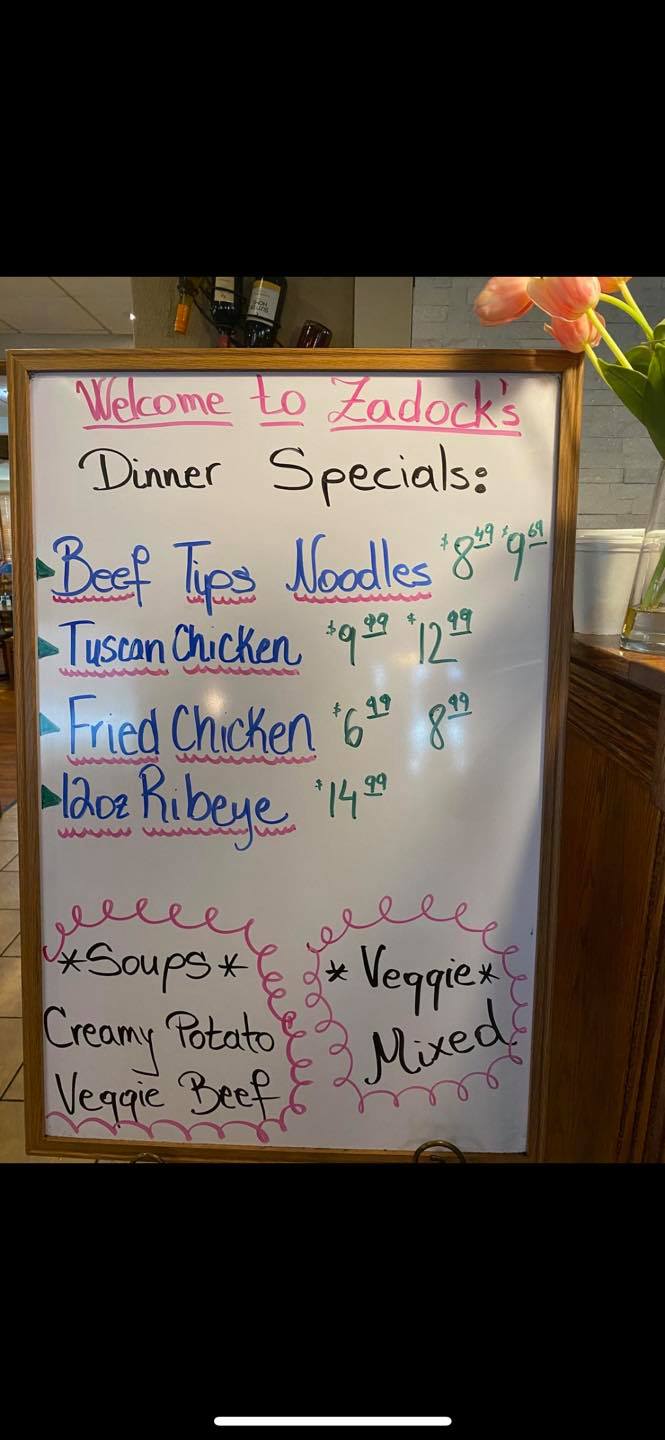 Welcome to Zadock's
Dinner Specials:
Beef Tips Noodles $8.49 $9.69
Tuscan Chicken $9.99 $12.99
Fried Chicken $6.99 8.99
12oz Ribeye $14.99
*Soups*
Creamy Potato
Veggie Beef
*Veggie*
Mixed